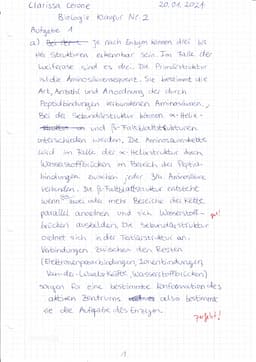 Clarissa Cerone 20.01.2024
Biologie Klausur Nr. 2
Aufgabe 1
a) Je nach Enzym können drei bis
vier Strukturen erkennbar sein. Im Falle der
Luciferase sind es drei. Die Primärstruktur
ist die Aminosäuresequenz. Sie bestimmt die
Art, Anzahl und Anordnung der durch
Peptidbindungen verbundenen Aminosäuren.
Bei der Sekundärstruktur können α-Helix-
und β-Faltblattstrukturen
unterschieden werden. Die Aminosäurenkette
wird im Falle der α-Helixstruktur durch
Wasserstoffbrücken im Bereich der Peptid-
bindungen zwischen jeder Aminosäure
verbunden. Die β-Faltblattstruktur entsteht
wenn zwei oder mehr Bereiche der Kette
parallel anordnen und sich Wasserstoff-
brücken ausbilden. Die Sekundärstruktur
ordnet sich in der Tertiärstruktur an.
Verbindungen zwischen den Resten
(Elektronenpaarbindungen, Ionenbindungen,
Van-der-Waals-Kräfte, Wasserstoffbrücken)
sorgen für eine bestimmte Konformation des
aktiven Zentrums also bestimmt
sie die Aufgabe des Enzyms.
perfekt!
1